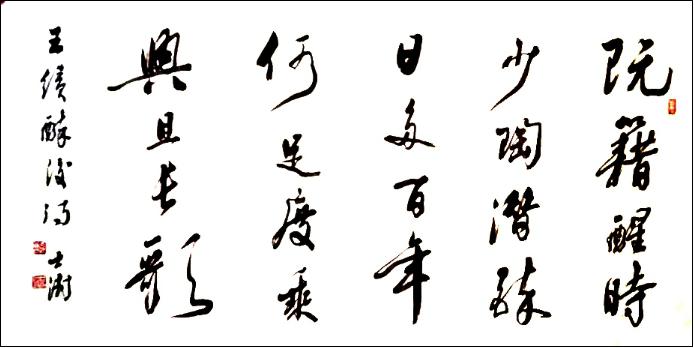 阮籍醒時
少陶潛醉
日多百年
何足度乘
興且長歌
王績醉後詩 士澍